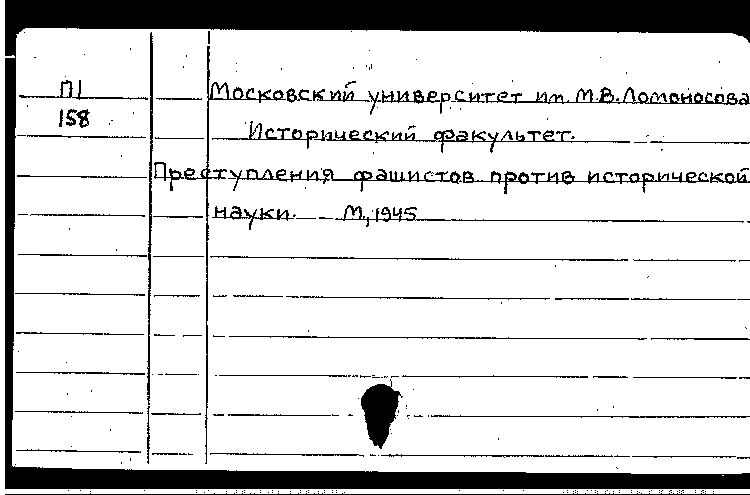 П1
158
Московский университет им. М.В. Ломоносова
Исторический факультет.
Преступления фашистов против исторической
науки. М., 1945